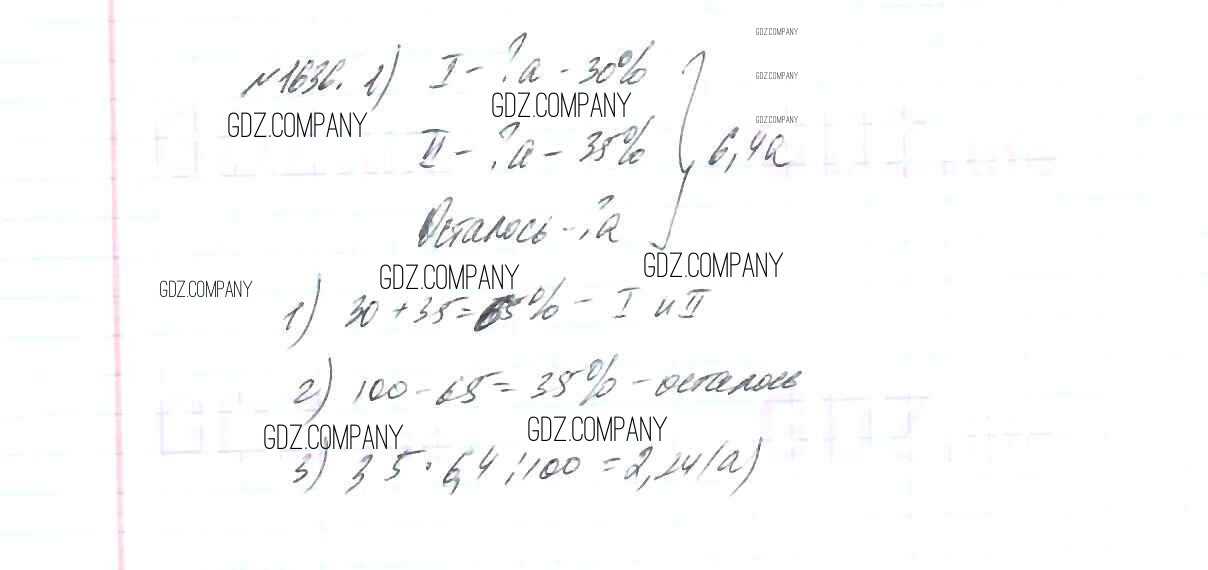 №1636. 1) I - ? а - 30%
II - ? а - 35%
Осталось - ? а
6,4а
1) 30 + 35 = 65% - I и II
2) 100 - 65 = 35% - осталось
3) 35 · 6,4 : 100 = 2,24 (а)
GDZ.COMPANY
GDZ.COMPANY
GDZ.COMPANY
GDZ.COMPANY
GDZ.COMPANY
GDZ.COMPANY
GDZ.COMPANY
GDZ.COMPANY
GDZ.COMPANY
GDZ.COMPANY